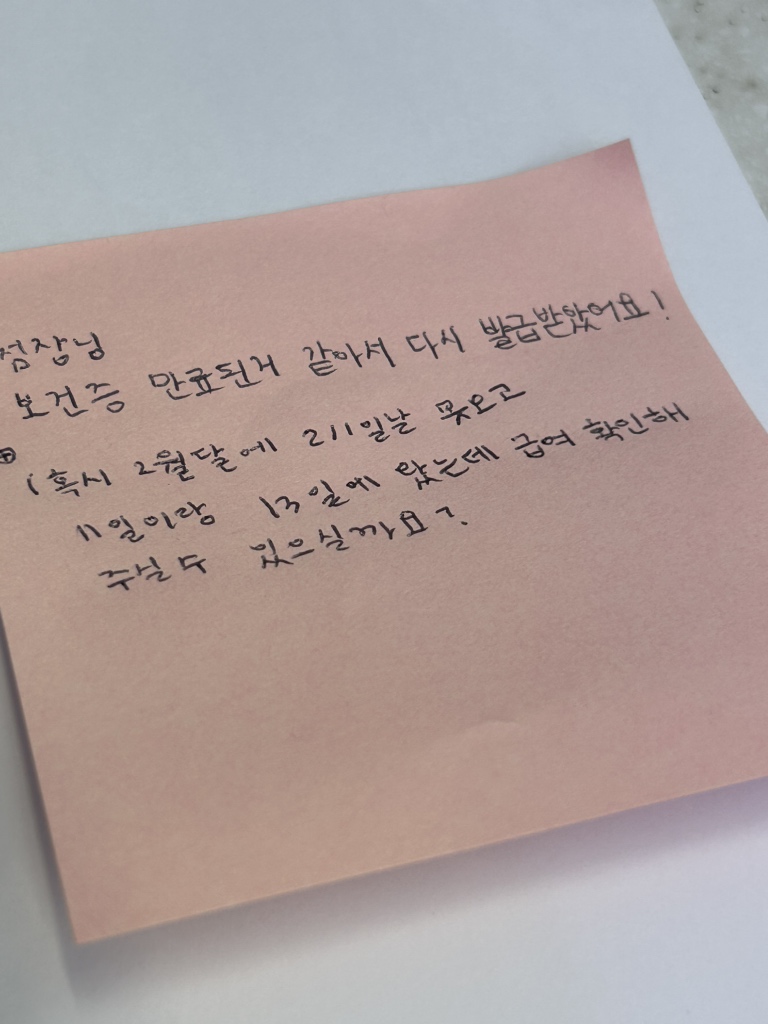 점장님
보건증 만료된거 같아서 다시 발급받았어요!
⊕
(혹시 2월달에 211일날 못오고
11일이랑 13일에 왔는데 급여 확인해
주실 수 있으실까요?